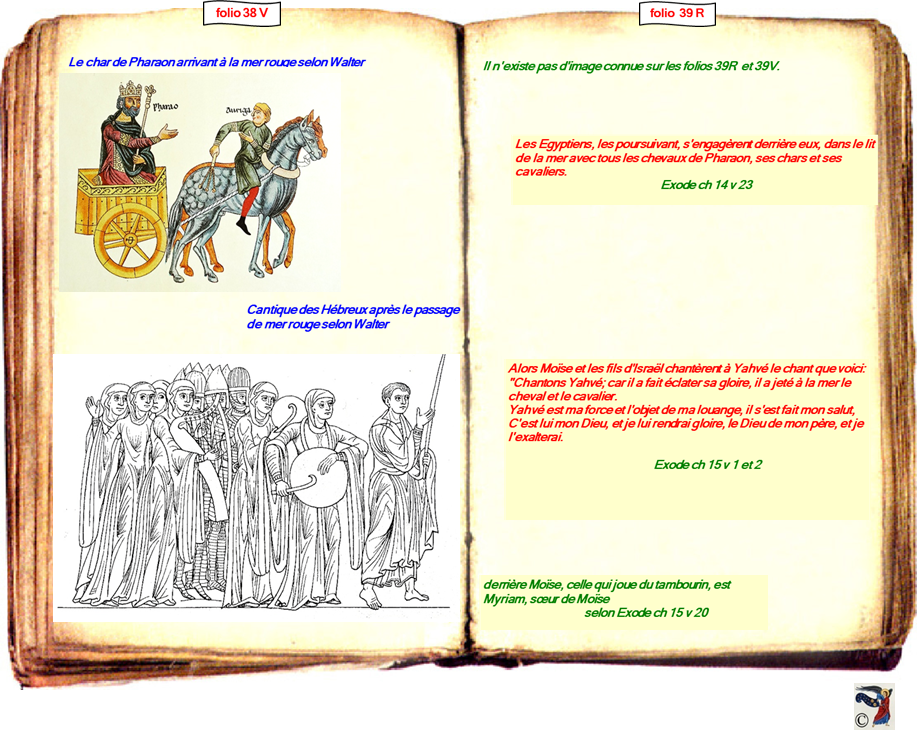 folio 38 V
folio 39 R
Le char de Pharaon arrivant à la mer rouge selon Walter
Pharao
auriga
Cantique des Hébreux après le passage
de mer rouge selon Walter
Il n'existe pas d'image connue sur les folios 39R et 39V.
Les Egyptiens, les poursuivant, s'engagèrent derrière eux, dans le lit
de la mer avec tous les chevaux de Pharaon, ses chars et ses
cavaliers.
Exode ch 14 v 23
Alors Moïse et les fils d'Israël chantèrent à Yahvé le chant que voici:
"Chantons Yahvé; car il a fait éclater sa gloire, il a jeté à la mer le
cheval et le cavalier.
Yahvé est ma force et l'objet de ma louange, il s'est fait mon salut,
C'est lui mon Dieu, et je lui rendrai gloire, le Dieu de mon père, et je
l'exalterai.
Exode ch 15 v 1 et 2
derrière Moïse, celle qui joue du tambourin, est
Myriam, sœur de Moïse
selon Exode ch 15 v 20
©